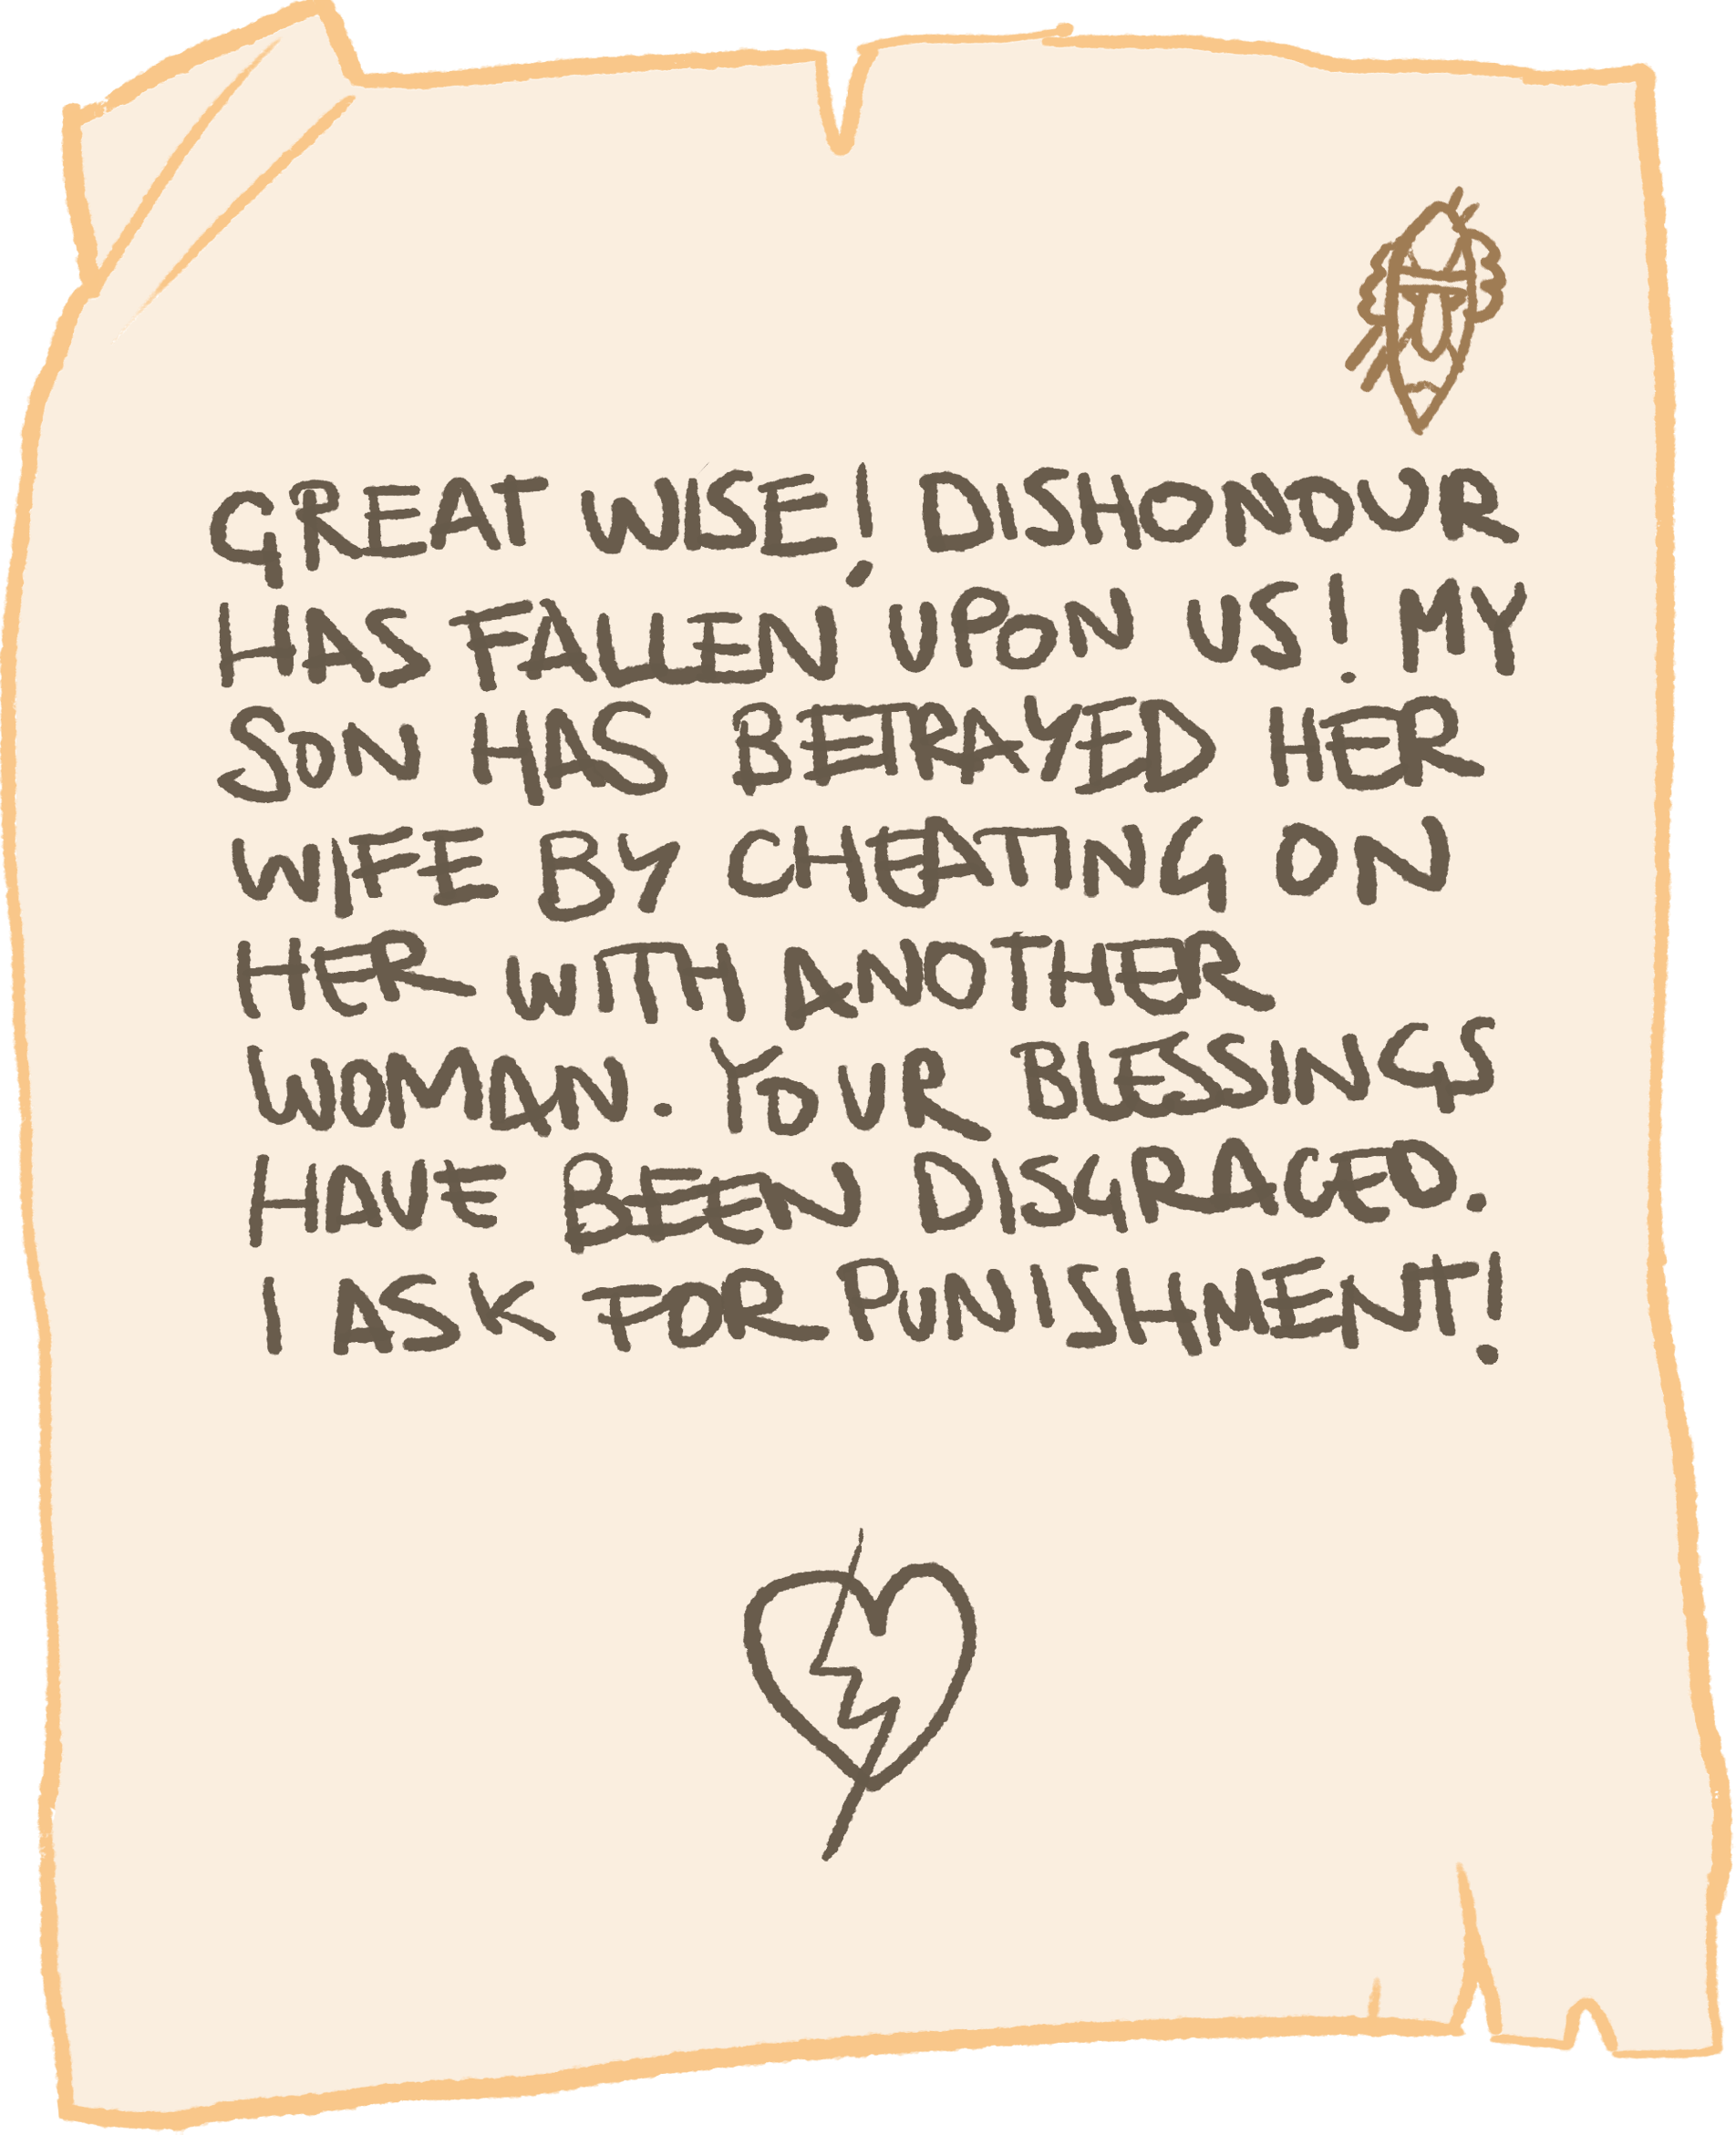 GREAT WISE! DISHONOUR
HAS FALLEN UPON US! MY
SON HAS BETRAYED HER
WIFE BY CHEATING ON
HER WITH ANOTHER
WOMAN. YOUR BLESSINGS
HAVE BEEN DISGRACED.
I ASK FOR PUNISHMENT!